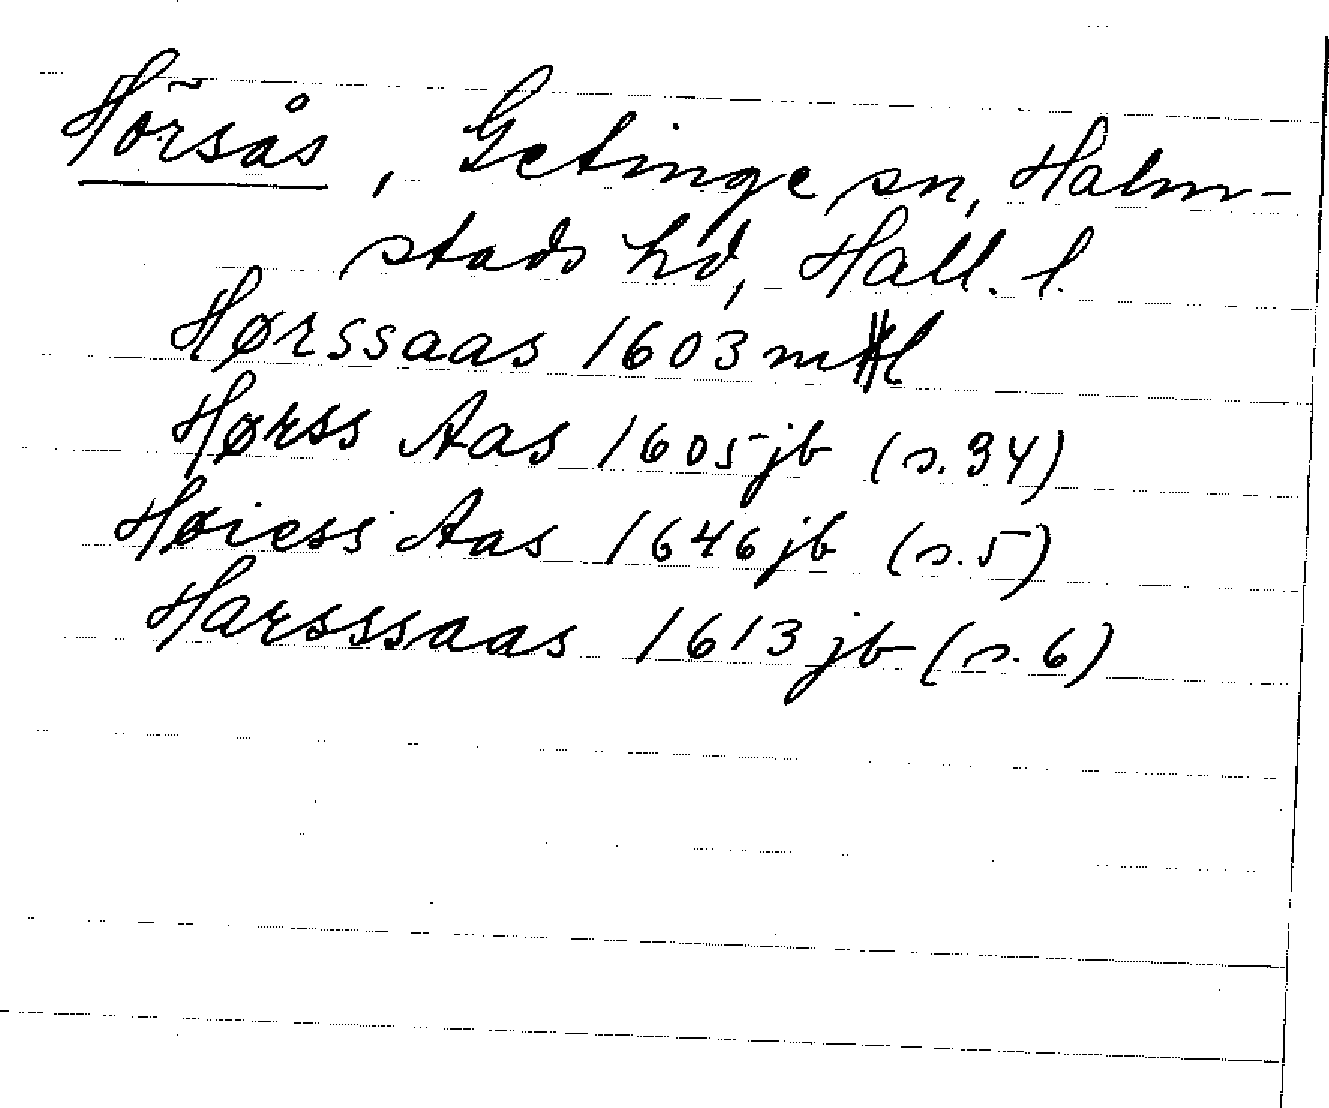 Hörsås, Getinge sn, Halm-
stads hd, Hall. l.
Hørssaas 1603 ml
Hørss Aas 1605 jb (s. 94)
Høiess Aas 1646 jb (s. 5)
Harsssaas 1613 jb (s. 6)